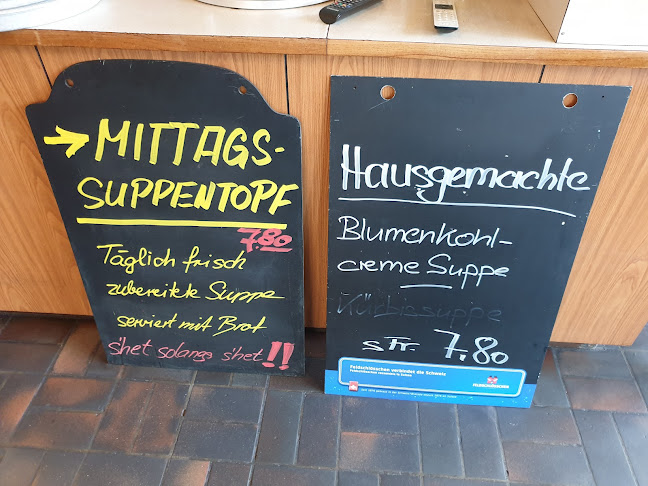 → MITTAGS-
SUPPENTOPF
7.80
Täglich frisch
zubereitete Suppe
serviert mit Brot
s'het solangs s'het !!
Hausgemachte
Blumenkohl-
creme Suppe
Kürbissuppe
sFr. 7.80
Feldschlösschen verbindet die Schweiz